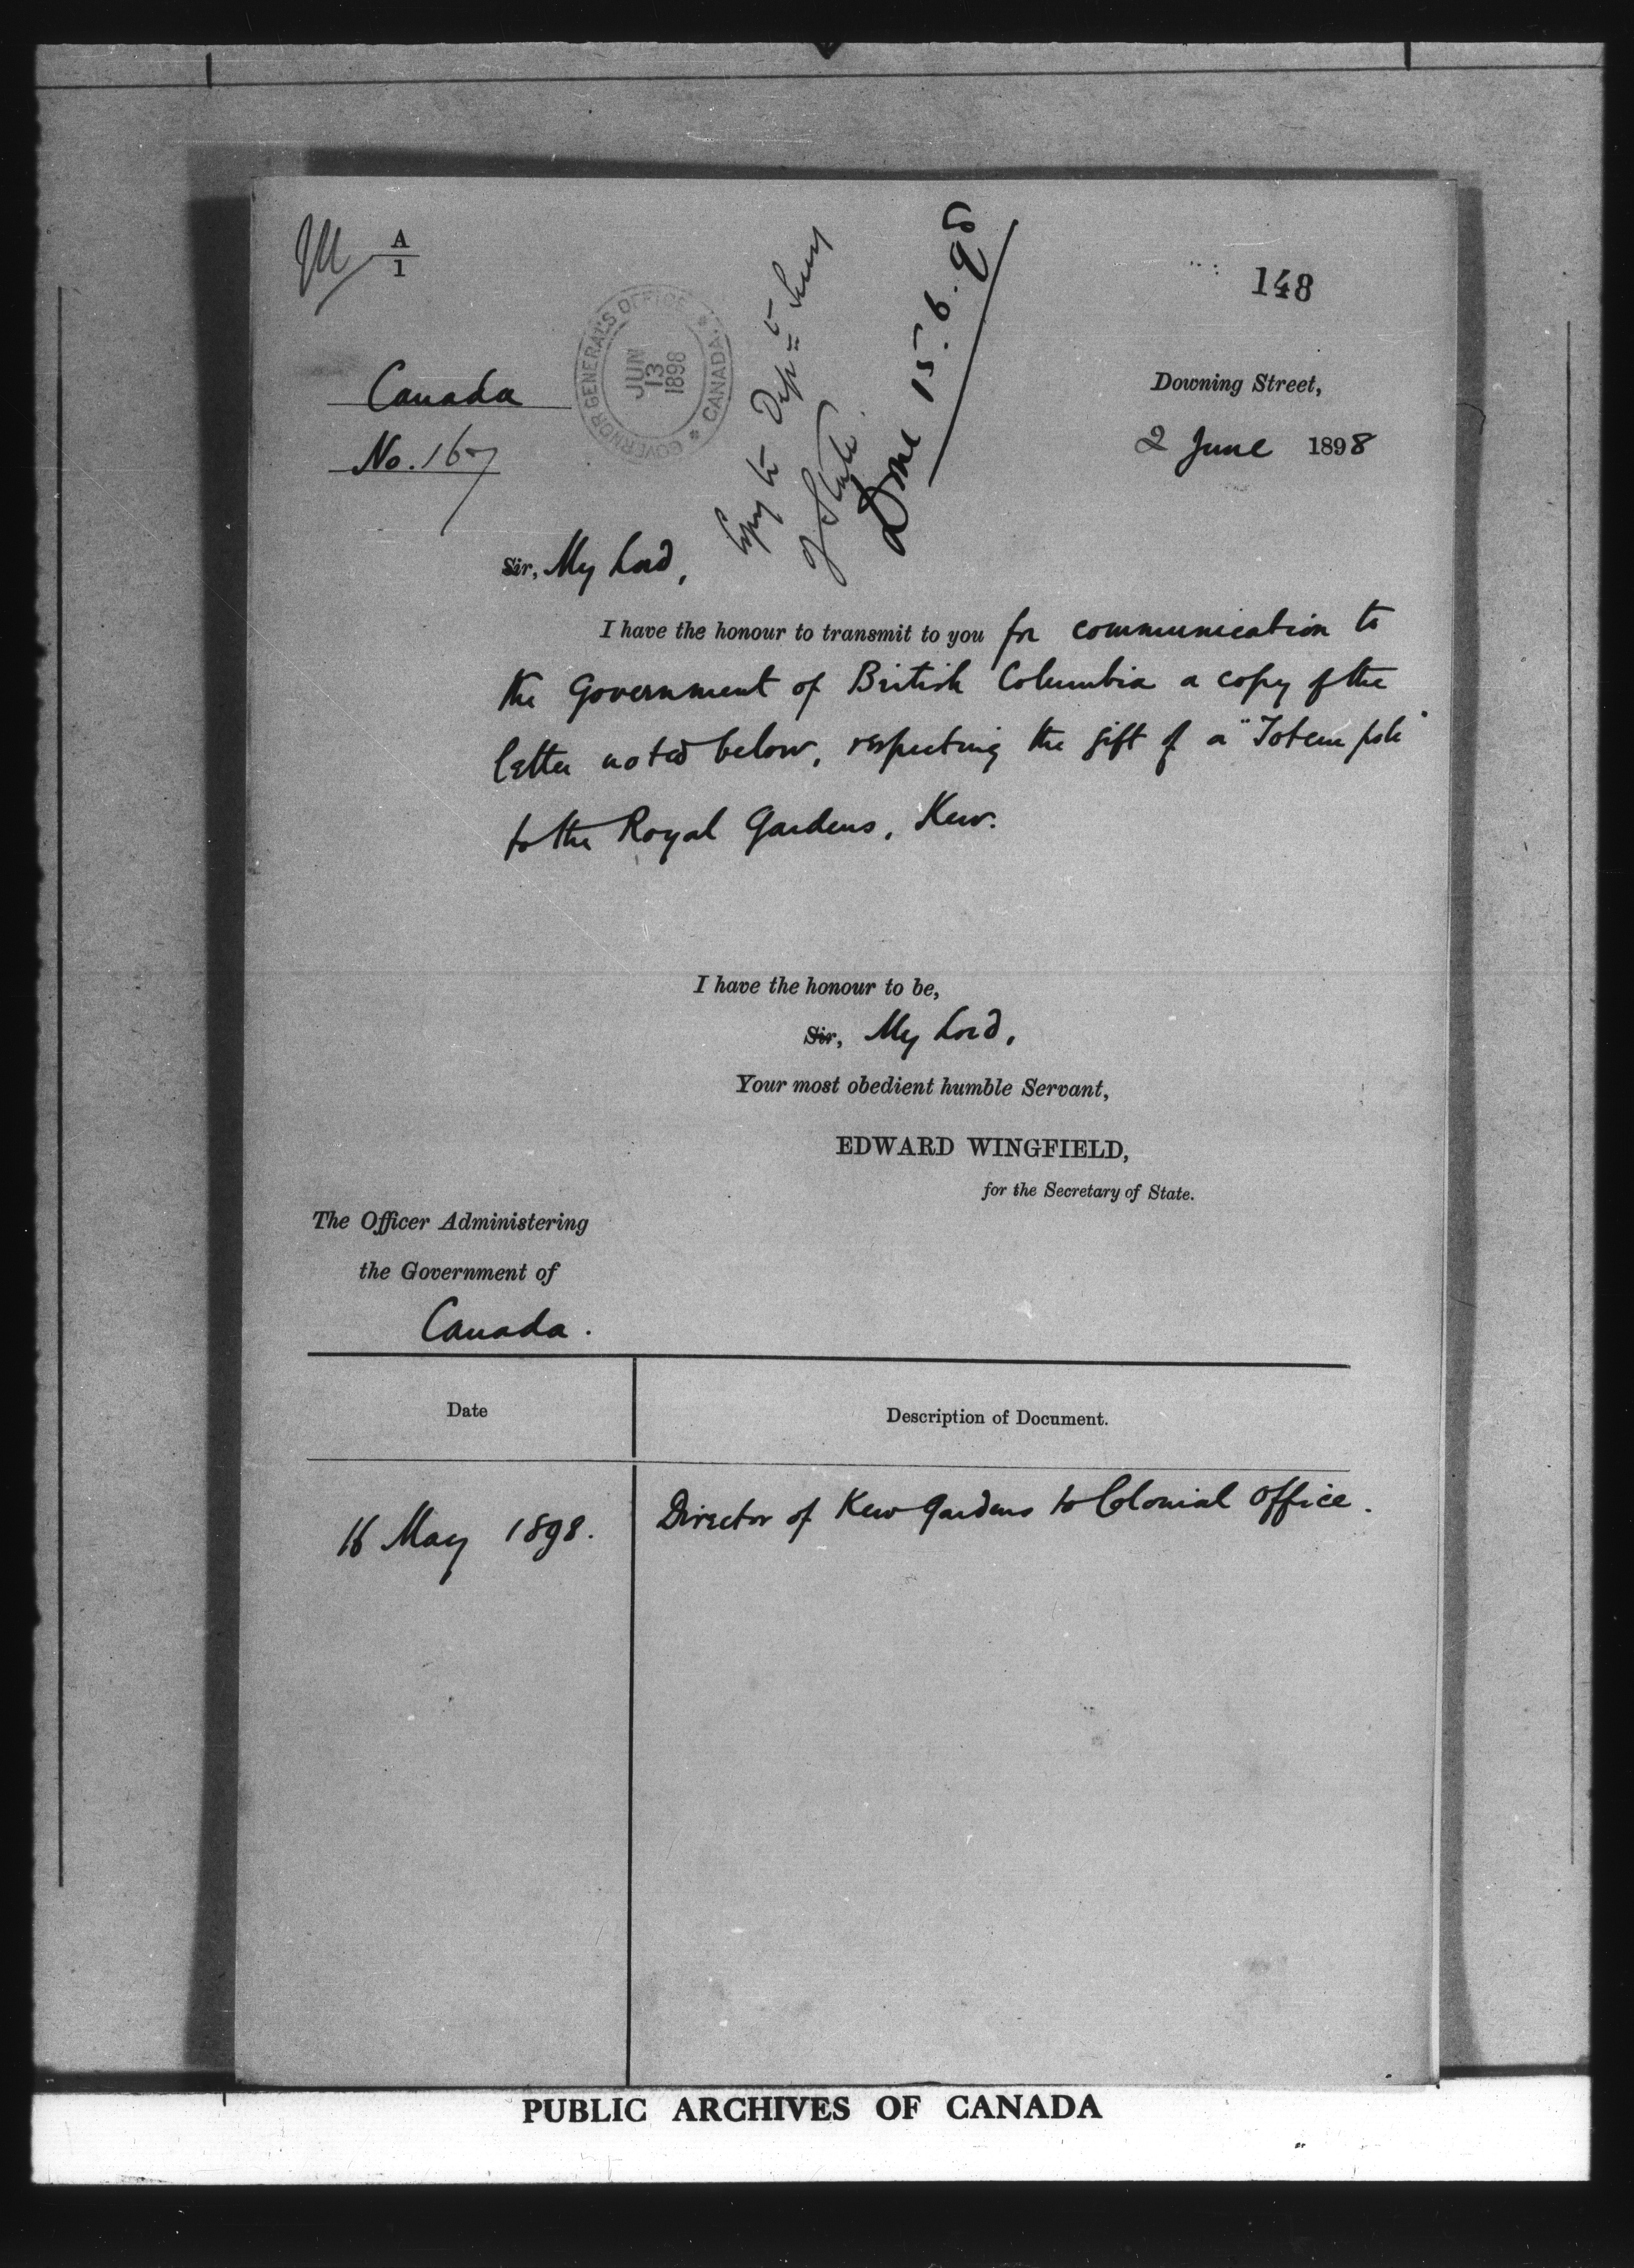 A
1
148
GOVERNOR GENERAL'S OFFICE
CANADA
JUN
13
1898
Copy to Dep=t Secy
of State.
Done 15.6.98
Canada
No. 167
Downing Street,
2 June 1898
Sir, My Lord,
I have the honour to transmit to you for communication to
the Government of British Columbia a copy of the
letter noted below, respecting the gift of a "Totem pole"
to the Royal Gardens, Kew.
I have the honour to be,
Sir, My Lord,
Your most obedient humble Servant,
EDWARD WINGFIELD,
for the Secretary of State.
The Officer Administering
the Government of
Canada.
Date
Description of Document.
16 May 1898.
Director of Kew Gardens to Colonial Office.
PUBLIC ARCHIVES OF CANADA